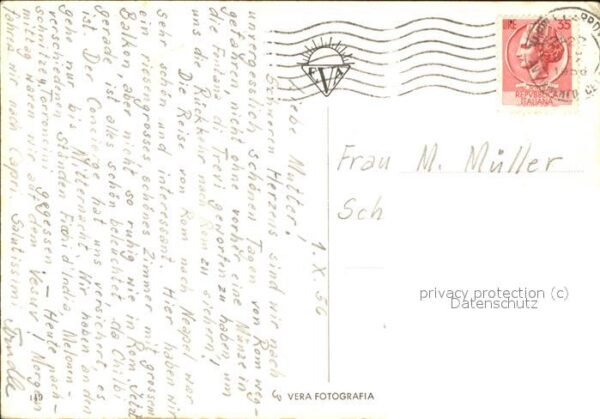 1. X. 56
Liebe Mutter!
Schweren Herzens sind wir nach
unvergesslich schönen Tagen von Rom weg-
gefahren, nicht ohne vorher eine Münze in
die Fontana di Trevi geworfen zu haben, um
uns die Rückkehr nach Rom zu sichern!
Die Reise von Rom nach Neapel war
sehr schön und interessant. Hier haben wir
ein riesengrosses schönes Zimmer mit grossem
Balkon, aber nicht so ruhig wie in Rom. Jetzt
gerade ist alles schön beleuchtet, da Chilbi
ist. Der Concierge hat uns versichert, es
gehe nur bis Mitternacht. Wir haben an den
verschiedenen Ständen Fichi d'India, Melonen-
schnitze, Torroncini gegessen. – Heute nach-
mittag waren wir auf dem Vesuv! Morgen
fahren wir nach Capri. Salutissimi
Trudle
EVA
LIRE 35
REPVBBLICA
ITALIANA
Frau M. Müller
Sch
privacy protection (c)
Datenschutz
VERA FOTOGRAFIA